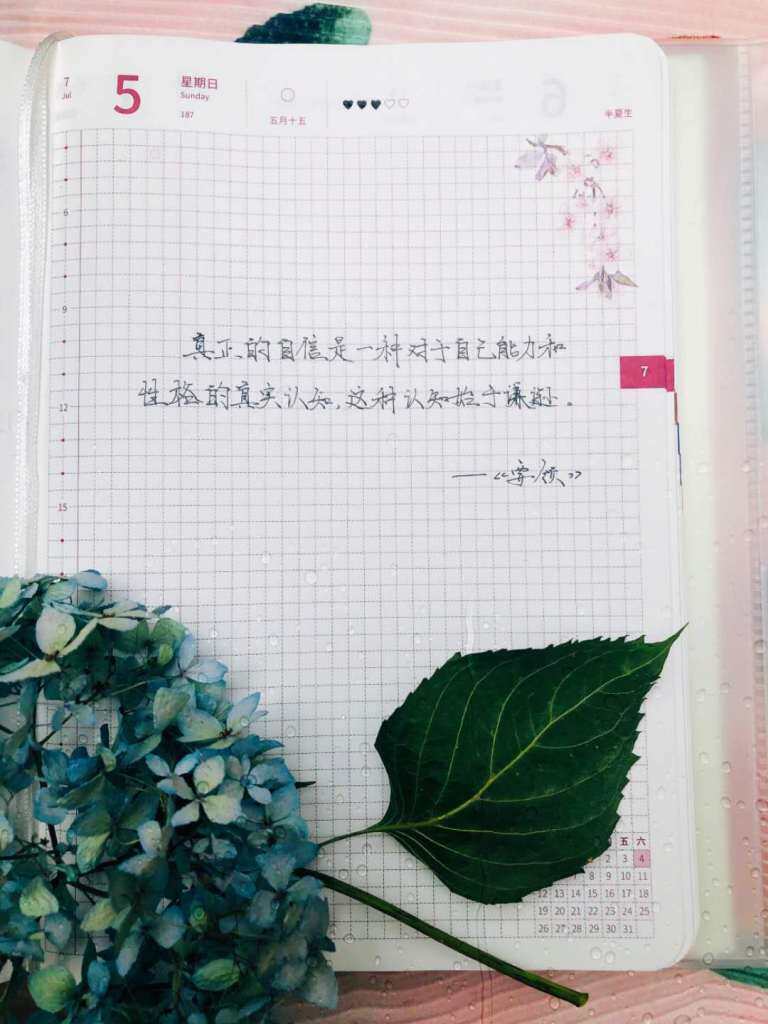 7
Jul
5
星期日
Sunday
187
五月十五
半夏生
6
9
真正的自信是一种对于自己能力和
7
性格的真实认知,这种认知始于谦逊。
12
——《要领》
15
五 六
2 3 4
8 9 10 11
12 13 14 15 16 17 18
19 20 21 22 23 24 25
26 27 28 29 30 31